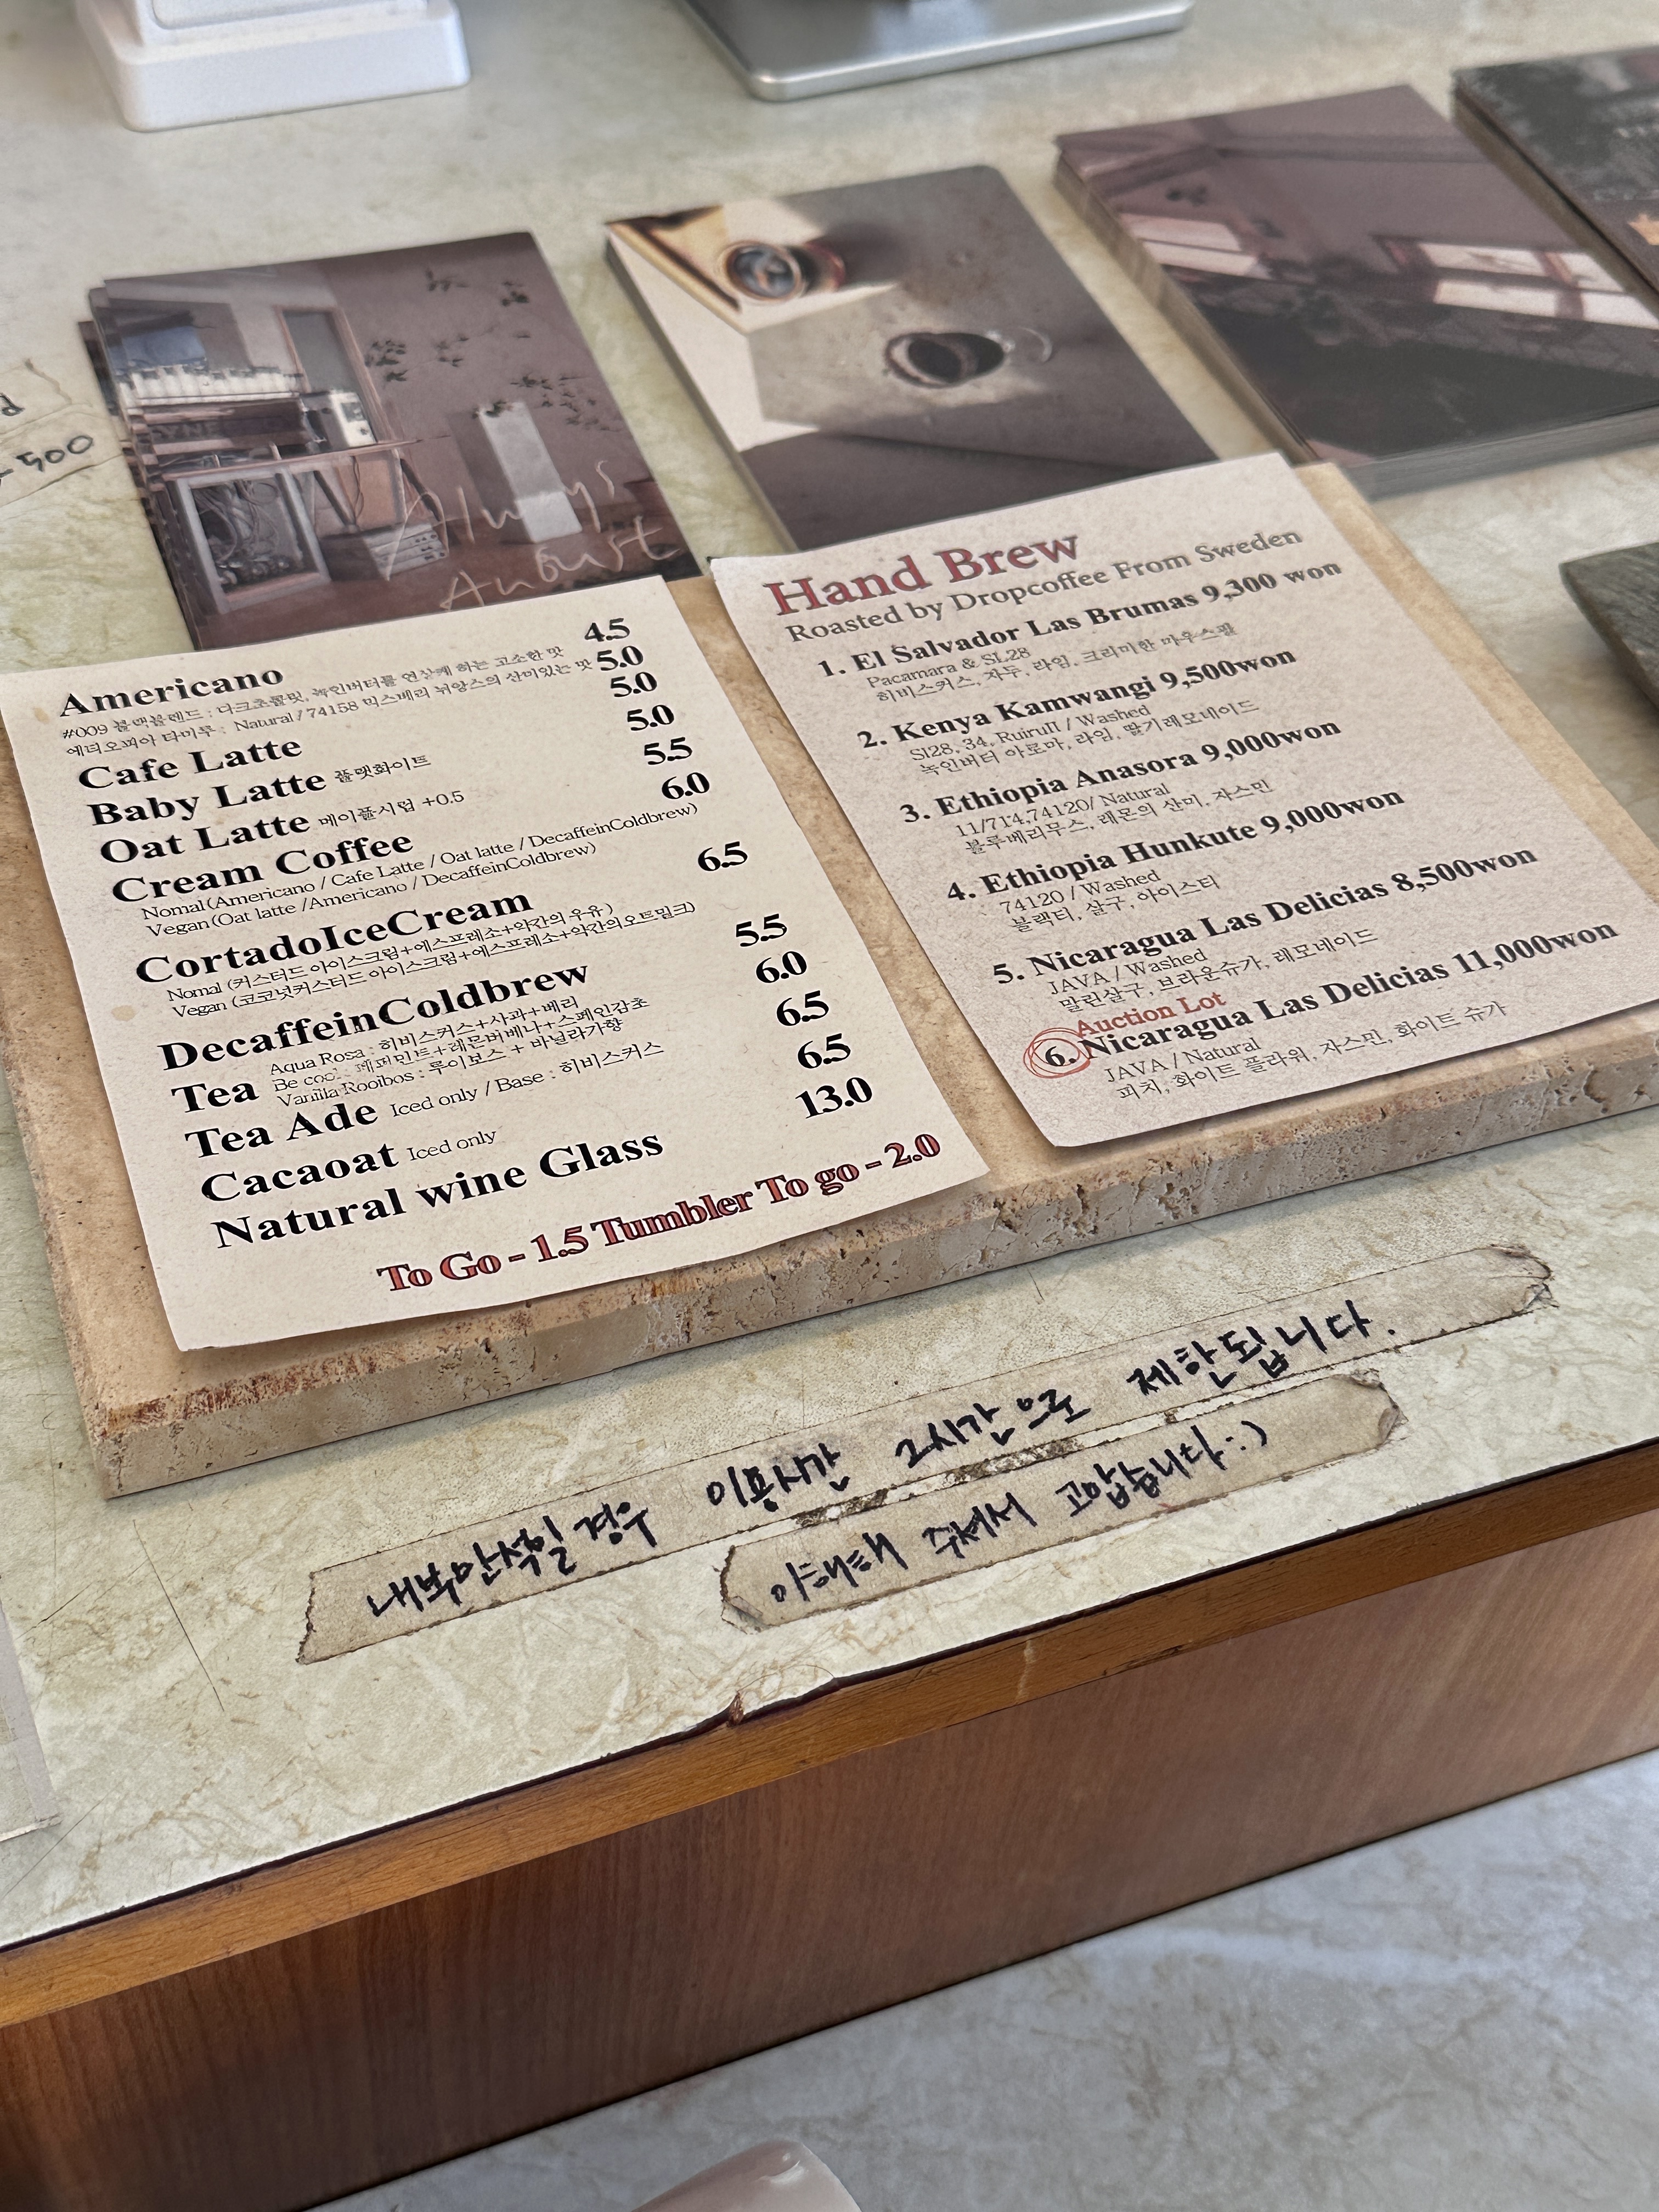 500
Always
August
Americano 4.5
#009 블랙블렌드 : 다크초콜릿, 녹인버터를 연상케 하는 고소한 맛
에티오피아 타미루 : Natural / 74158 믹스베리 뉘앙스의 산미있는 맛 5.0
Cafe Latte 5.0
Baby Latte 플랫화이트 5.0
Oat Latte 메이플시럽 +0.5 5.5
Cream Coffee 6.0
Nomal (Americano / Cafe Latte / Oat latte / DecaffeinColdbrew)
Vegan (Oat latte /Americano / DecaffeinColdbrew)
CortadoIceCream 6.5
Nomal (커스터드 아이스크림+에스프레소+약간의 우유)
Vegan (코코넛커스터드 아이스크림+에스프레소+약간의오트밀크)
DecaffeinColdbrew 5.5
Aqua Rosa : 히비스커스+사과+베리
Tea Be cool : 페퍼민트+레몬버베나+스페인감초 6.0
Vanilla Rooibos : 루이보스 + 바닐라가향
Tea Ade Iced only / Base : 히비스커스 6.5
Cacaoat Iced only 6.5
Natural wine Glass 13.0
To Go - 1.5 Tumbler To go - 2.0
Hand Brew
Roasted by Dropcoffee From Sweden
1. El Salvador Las Brumas 9,300 won
Pacamara & SL28
히비스커스, 자두, 라임, 크리미한 마우스필
2. Kenya Kamwangi 9,500won
Sl28, 34, RuiruII / Washed
녹인버터 아로마, 라임, 딸기레모네이드
3. Ethiopia Anasora 9,000won
11/714,74120/ Natural
블루베리무스, 레몬의 산미, 자스민
4. Ethiopia Hunkute 9,000won
74120 / Washed
블랙티, 살구, 아이스티
5. Nicaragua Las Delicias 8,500won
JAVA / Washed
말린살구, 브라운슈가, 레모네이드
Auction Lot
6. Nicaragua Las Delicias 11,000won
JAVA / Natural
피치, 화이트 플라워, 자스민, 화이트 슈가
내부만석일 경우 이용시간 2시간으로 제한됩니다.
이해해 주셔서 고맙습니다 :)